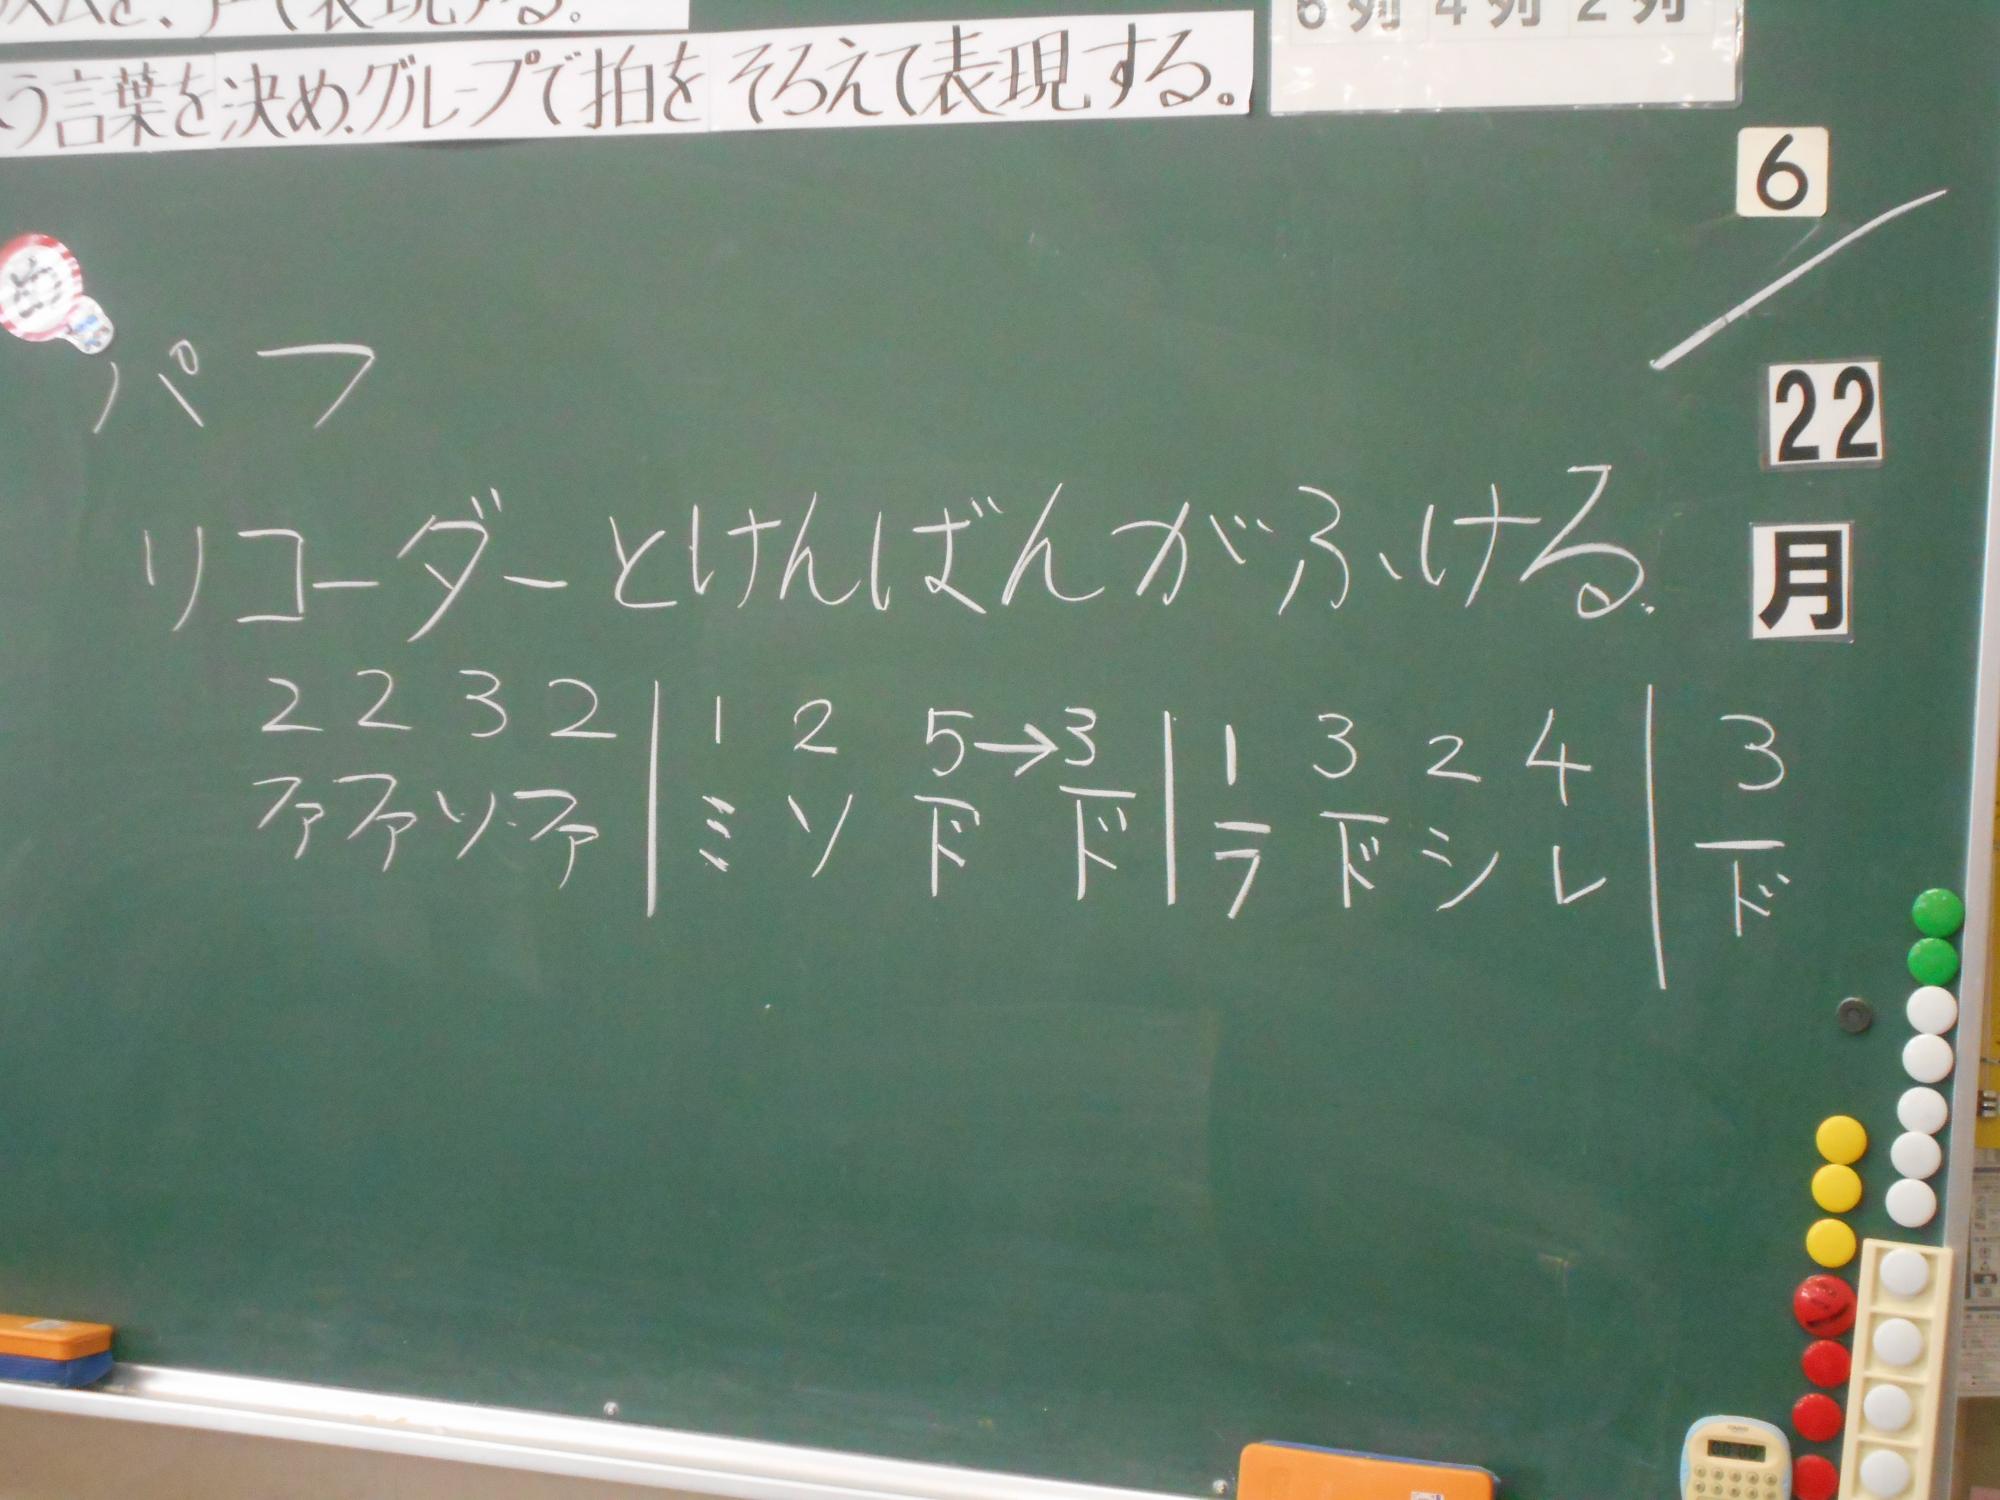 て表現する。
う言葉を決め、グループで拍をそろえて表現する。
6列 4列 2列
6
22
月
パフ
リコーダーとけんばんがふける。
2 2 3 2 | 1 2 5→3 | 1 3 2 4 | 3
ファ ファ ソ ファ | ミ ソ ド ド | ラ ド シ レ | ド